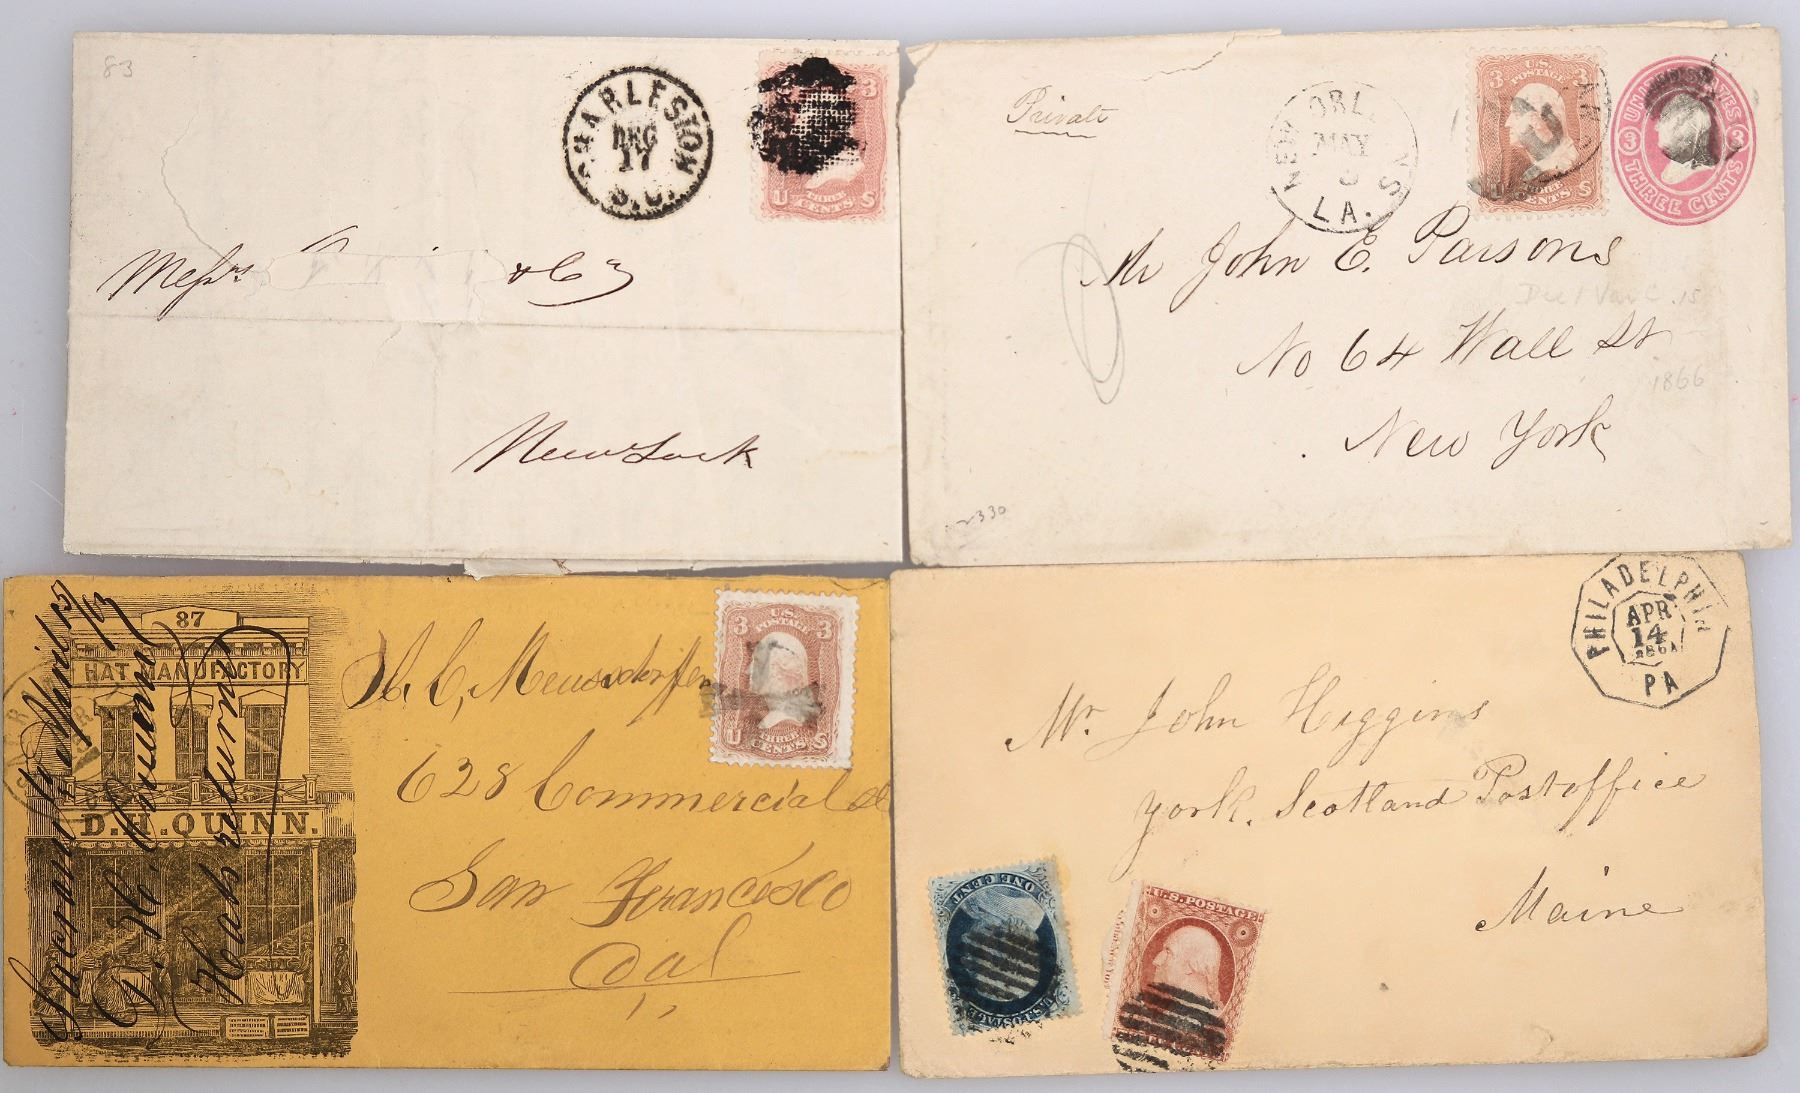 83
CHARLESTON
DEC
17
S.C.
3
U THREE CENTS S
Messrs & Co
New York
Private
NEW ORL NS
MAY
LA.
3 U.S. POSTAGE 3
U THREE CENTS S
UNITED STATES
3 3
THREE CENTS
Mr John E. Parsons
Die 1 Var C .15
No 64 Wall St
1866
New York
2330
87
HAT MANUFACTORY
D.H. QUINN.
Sacramento April 15/63
D. H. Quinn
Hats returned
3 U.S. POSTAGE 3
U THREE CENTS S
H. C, Meussdorffer
628 Commercial St
San Francisco
Cal
PHILADELPHIA
APR
14
1861
PA
Mr. John Higgins
York, Scotland Postoffice
Maine
ONE CENT
U.S. POSTAGE
U.S. POSTAGE